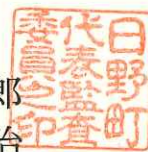 日野町
代表監査
委員之印
郎